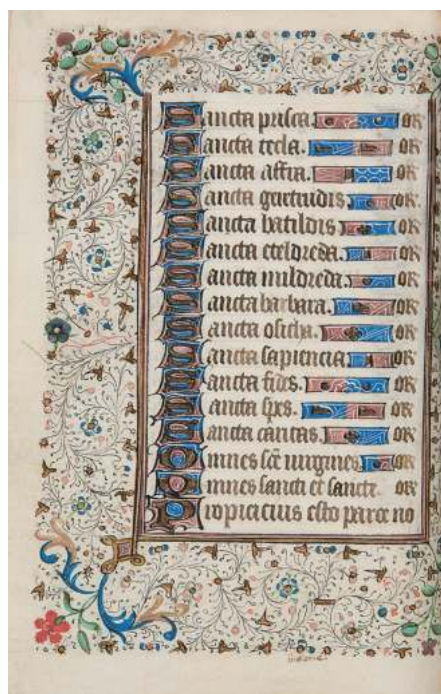 Sancta prisca. or
Sancta tecla. or
Sancta affra. or
Sancta gertrudis. or
Sancta batildis or
Sancta eteldreda. or
Sancta mildreda. or
Sancta barbara. or
Sancta ositha. or
Sancta sapiencia or
Sancta fides. or
Sancta spes. or
Sancta caritas. or
Omnes sce uirgines. or
Omnes sancti et sancte. or
Propicius esto parce no